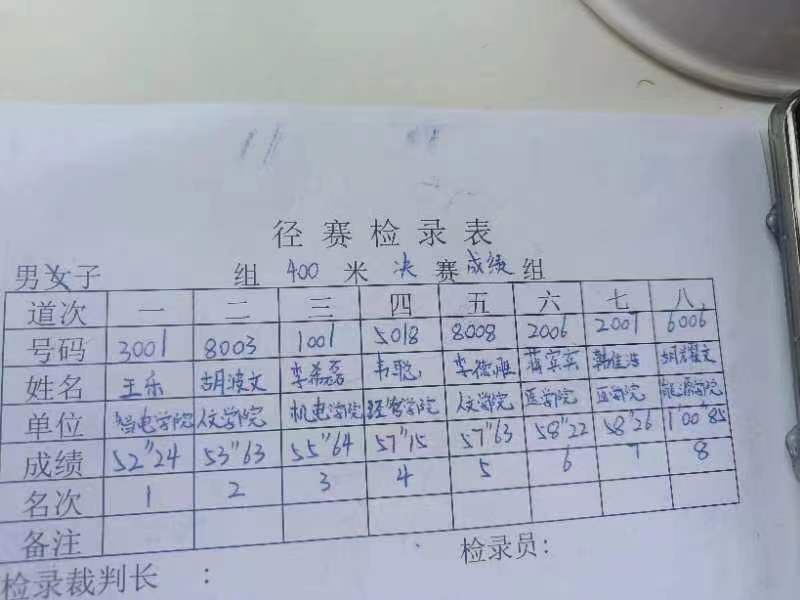 径赛检录表
男女子 组 400 米 决 赛 成绩 组
道次 一 二 三 四 五 六 七 八
号码 3001 8003 1001 5018 8008 2006 2007 6006
姓名 王乐 胡波文 李希磊 韦聪 李 胡耀文
单位 智电学院 人文学院 机电学院 经管学院 人文学院 医学院 医学院 能源学院
成绩 52"24 53"63 55"64 57"15 57"63 58"22 58"26 1'00"85
名次 1 2 3 4 5 6 7 8
备注
检录裁判长 : 检录员: